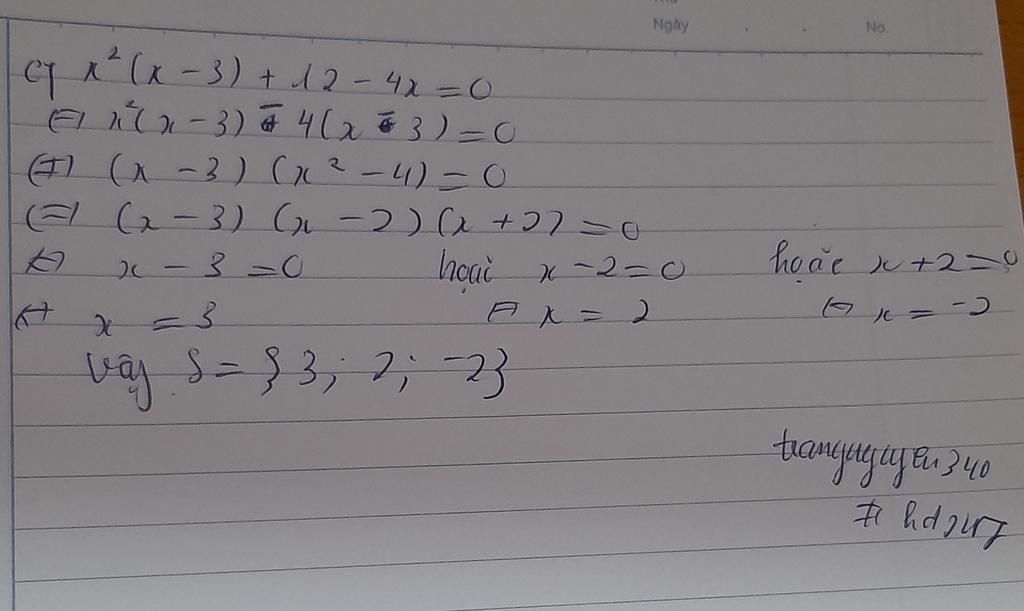 Ngày . . No.
c) x²(x - 3) + 12 - 4x = 0
⇔ x²(x - 3) - 4(x - 3) = 0
⇔ (x - 3) (x² - 4) = 0
⇔ (x - 3) (x - 2) (x + 2) = 0
⇔ x - 3 = 0 hoặc x - 2 = 0 hoặc x + 2 = 0
⇔ x = 3 ⇔ x = 2 ⇔ x = -2
Vậy S = {3; 2; -2}
trangnguyen340
# hd247